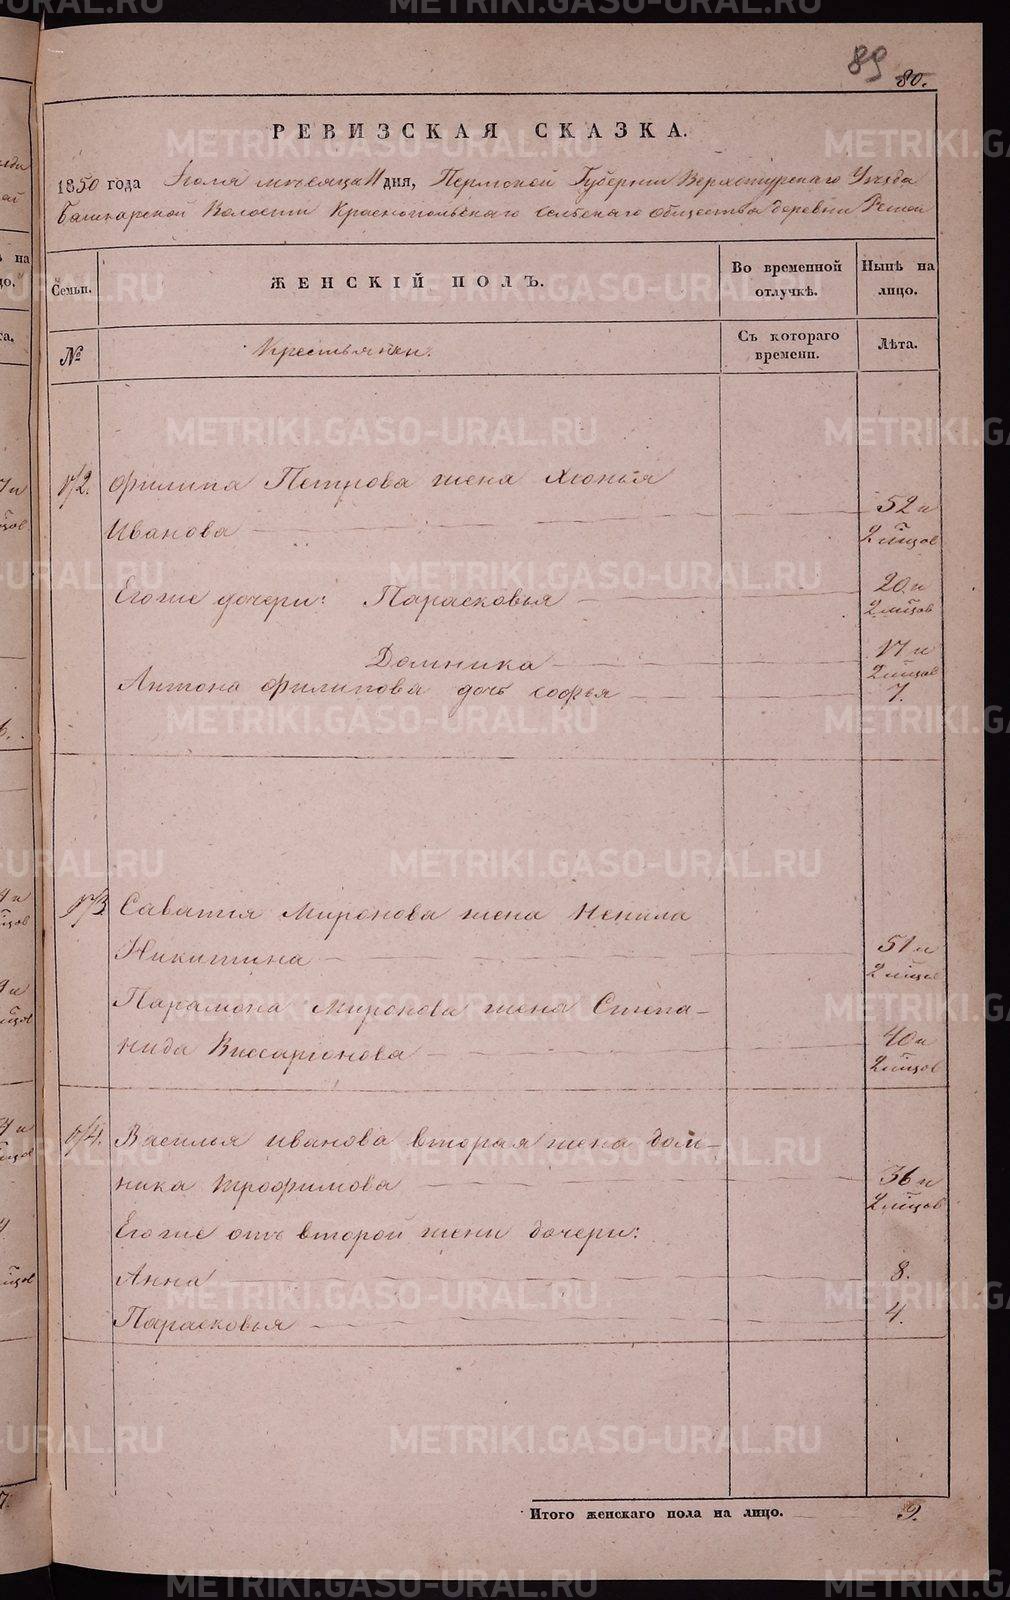 METRIKI.GASO-URAL.RU
89
80.
РЕВИЗСКАЯ СКАЗКА.
1850 года Іюля мѣсяца 11 дня, Пермской Губерніи Верхотурскаго Уѣзда
Башкарской Волости Краснопольскаго сельскаго общества деревни
Семьи.
ЖЕНСКІЙ ПОЛЪ.
Во временной отлучкѣ.
Нынѣ на лицо.
№
Крестьянки.
Съ котораго времени.
Лѣта.
172. Филипа Петрова жена Хіонья
Иванова 52 и 2 мцов
Его же дочери: Парасковья 20 и 2 мцов
Домника 17 и 2 мцов
Антона Филипова дочь Софья 7.
173 Саватия Миронова жена Ненила
Никитина 51 и 2 мцов
Парамона Миронова жена Степа-
нида Висаріонова 40 и 2 мцов
174. Василья Иванова вторая жена Дом-
ника Трофимова 36 и 2 мцов
Его же отъ второй жены дочери:
Анна 8.
Парасковья 4.
Итого женскаго пола на лицо. 9.